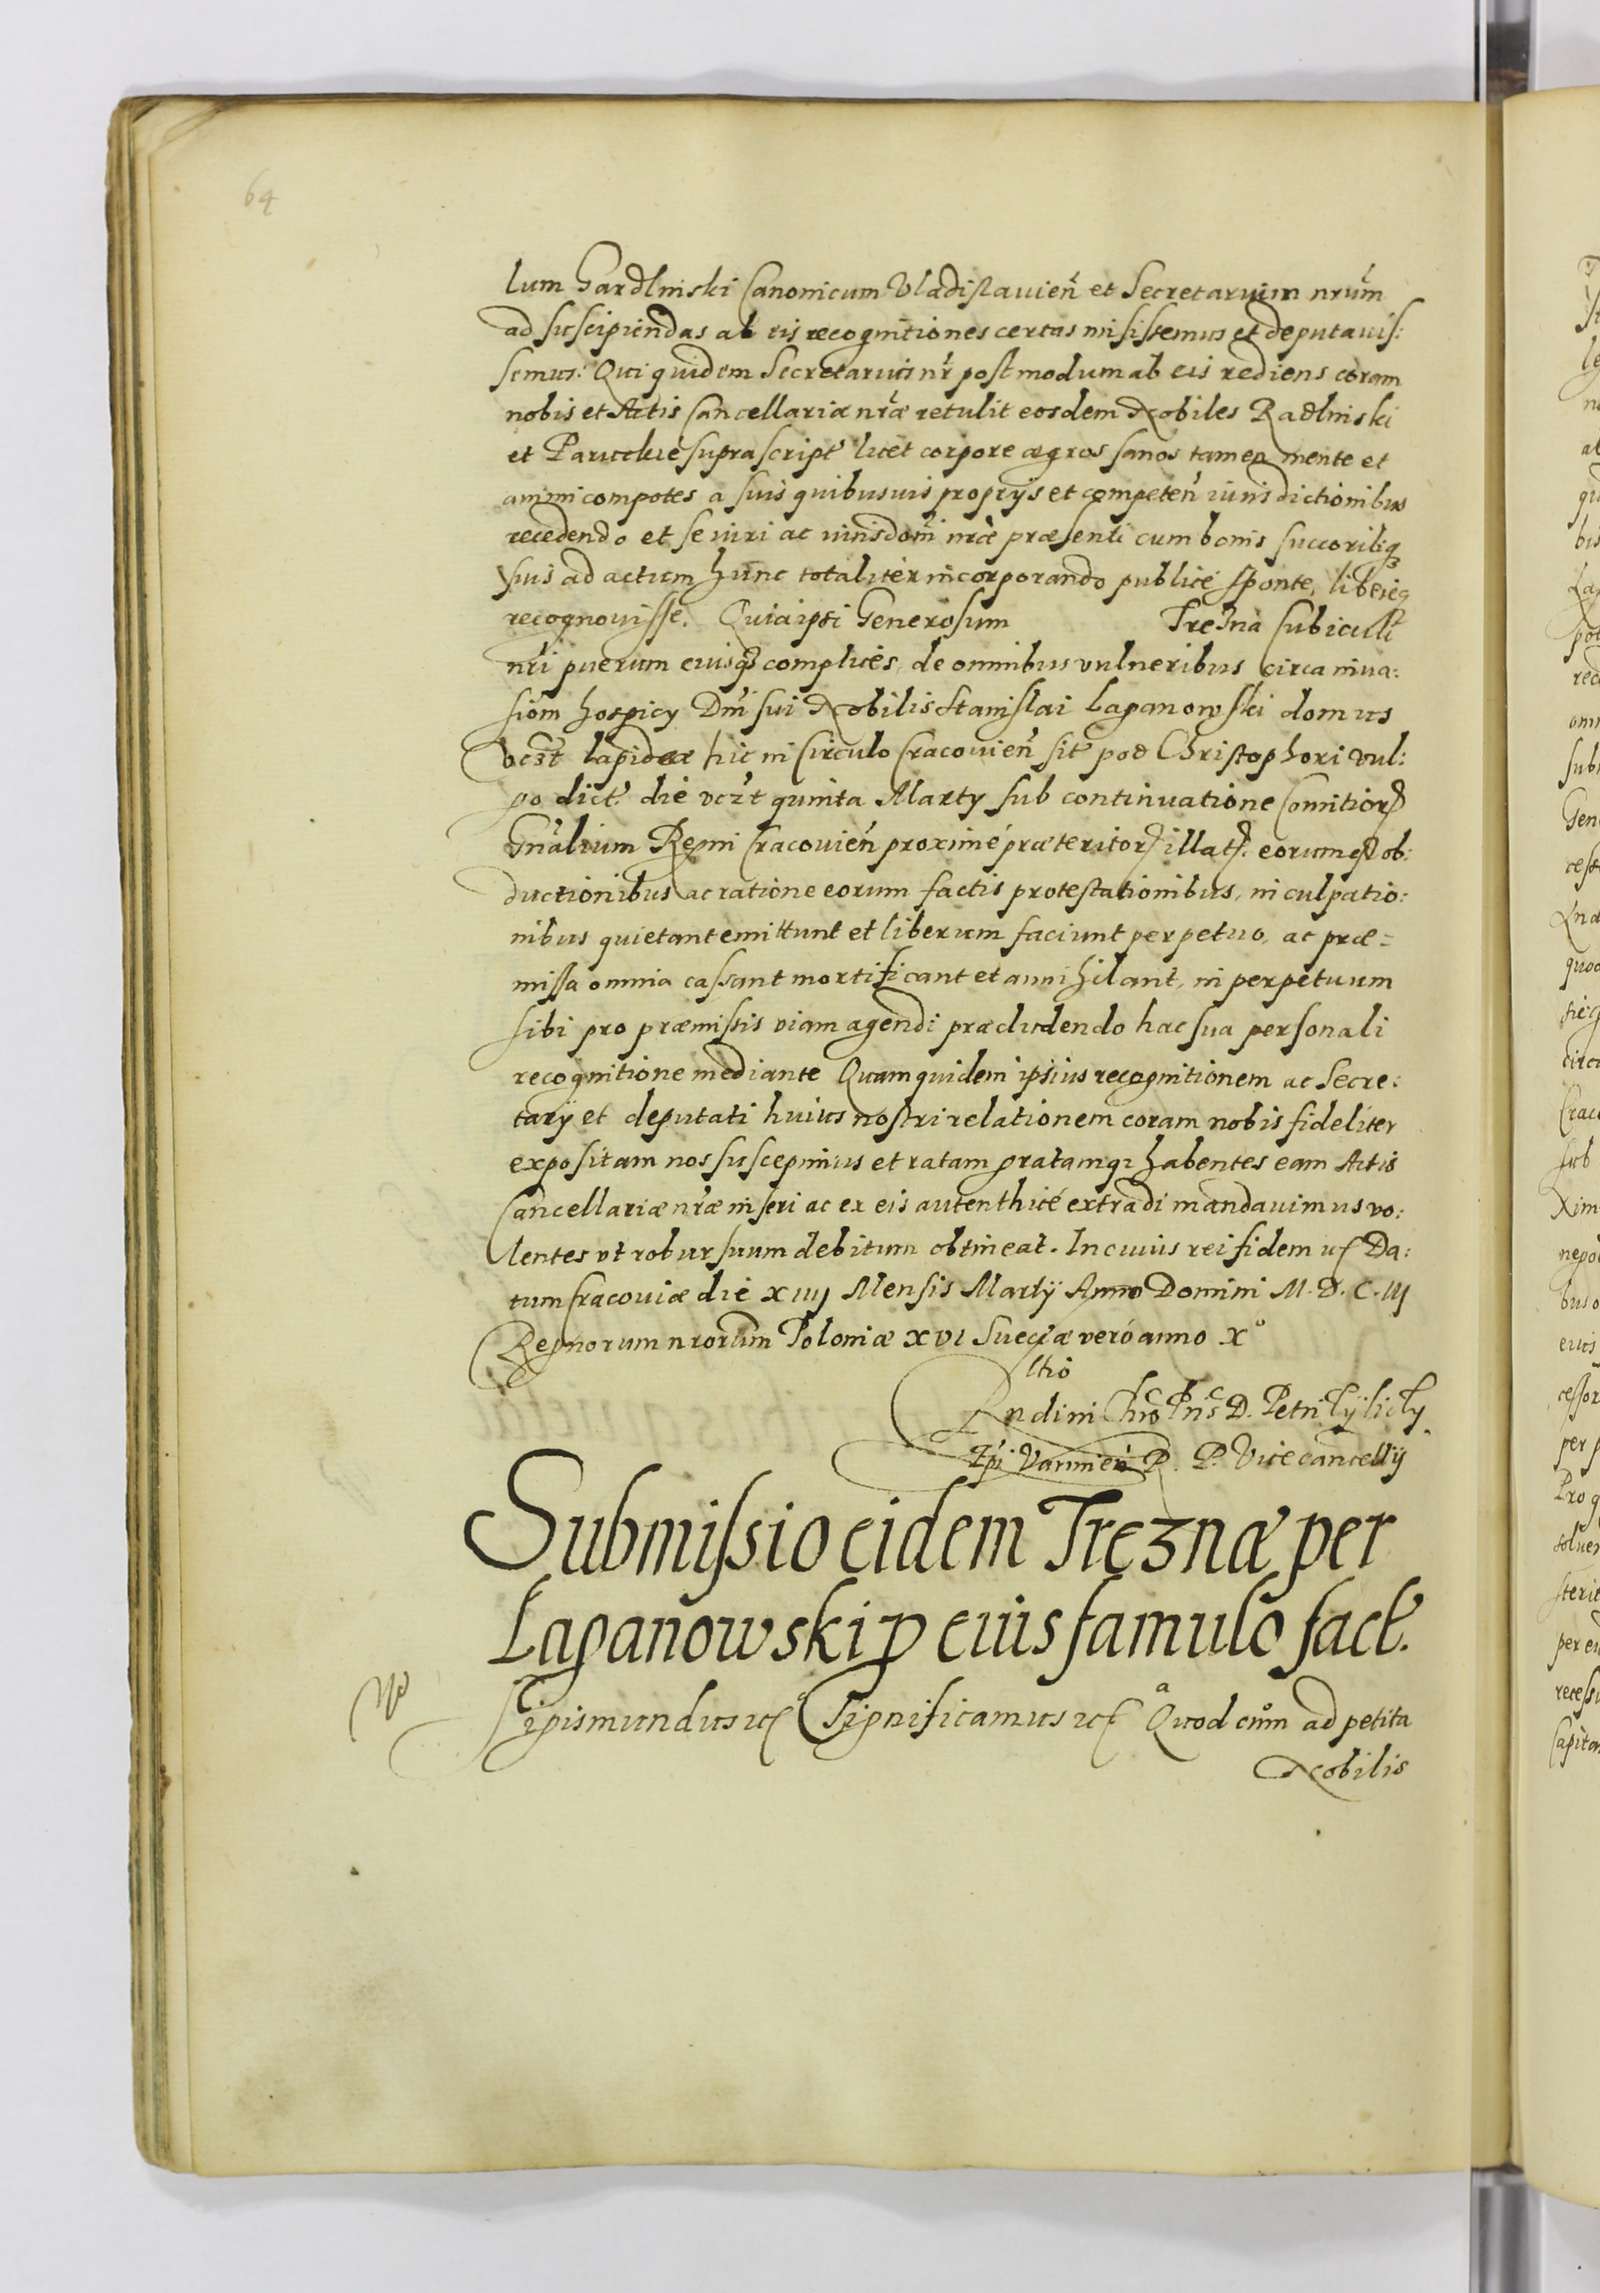 64
lum Gardlinski Canonicum Vladislauien̄ et Secretarium nrūm
ad suscipiendas ab eis recognitiones certas misissemus et deputauis:
semus: Qui quidem Secretarius nr̄ postmodum ab eis rediens coram
nobis et Actis Cancellariæ nr̄æ retulit eosdem Nobiles Radlinski
et suprascript' licet corpore ægros sanos tamen mente et
animi compotes a suis quibusuis proprijs et competen̄ iurisdictionibus
recedendo et se iuri ac iurisdom̄ nr̄æ præsenti cum bonis succoribq3
suis ad actum hunc totaliter incorporando publicé sponte, libereq3
recognouisse. Quia ipsi Generosum Trezna subiculi
nr̄i puerum eiusq3 complices, de omnibus vulneribus circa inua:
siom̄ hospicij Dn̄i sui Nobilis Stanislai Laganowski domus
vcz̄t lapideæ hic in Circulo Cracouien̄ sit' pod Christophori vul:
go dict' die vcz̄t quinta Martij sub continuatione Comitior
Gn̄alium Regni Cracouien̄ proximé præteritor illat. eorumq3 ob:
ductionibus ac ratione eorum factis protestationibus, inculpatio:
nibus quietant emittunt et liberum faciunt perpetuo, ac præ=
missa omnia cassant mortificant et annihilant, in perpetuum
sibi pro præmissis viam agendi præcludendo hac sua personali
recognitione mediante Quam quidem ipsius recognitionem ac Secre:
tarij et deputati huius nostri relationem coram nobis fideliter
expositam nos suscepimus et ratam gratamq3 habentes eam Actis
Cancellariæ nr̄æ inseri ac ex eis autenthicé extradi mandauimus vo:
lentes vt robur suum debitum obtineat. In cuius rei fidem etc Da:
tum Cracouiæ die XIIIJ Mensis Martij Anno Domini M.D.C.IIJ
Regnorum nrorum Poloniæ XVI Sueciæ veró anno X°
ltio
Rndi in Chro Pris D. Petri Tylicky
Epi Varmien̄ R. P. Vicecancellij
Submissio eidem Treznæ per
Laganowski p eius famulo fact'.
Sigismundus etc Significamus etc Quod cum ad petita
Nobilis